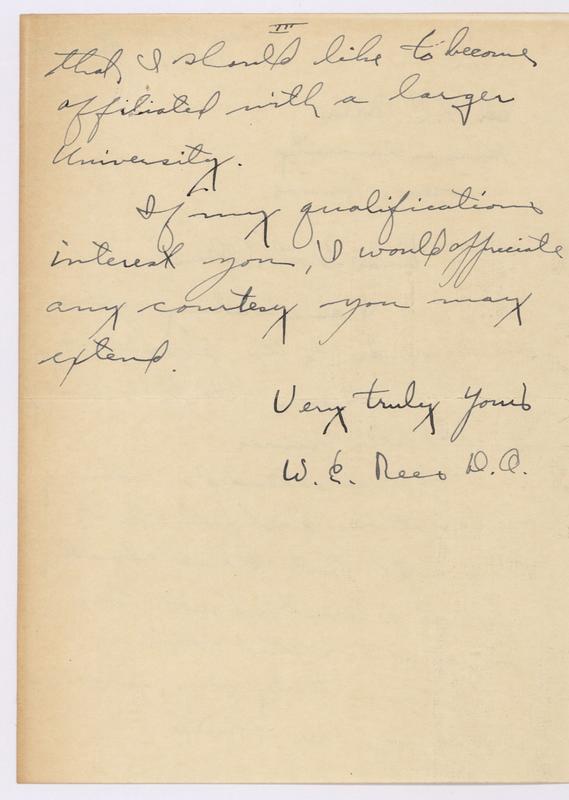 III
that I should like to become
affiliated with a larger
University.
If my qualifications
interest you, I would appreciate
any courtesy you may
extend.
Very truly yours
W. E. Rees D.O.